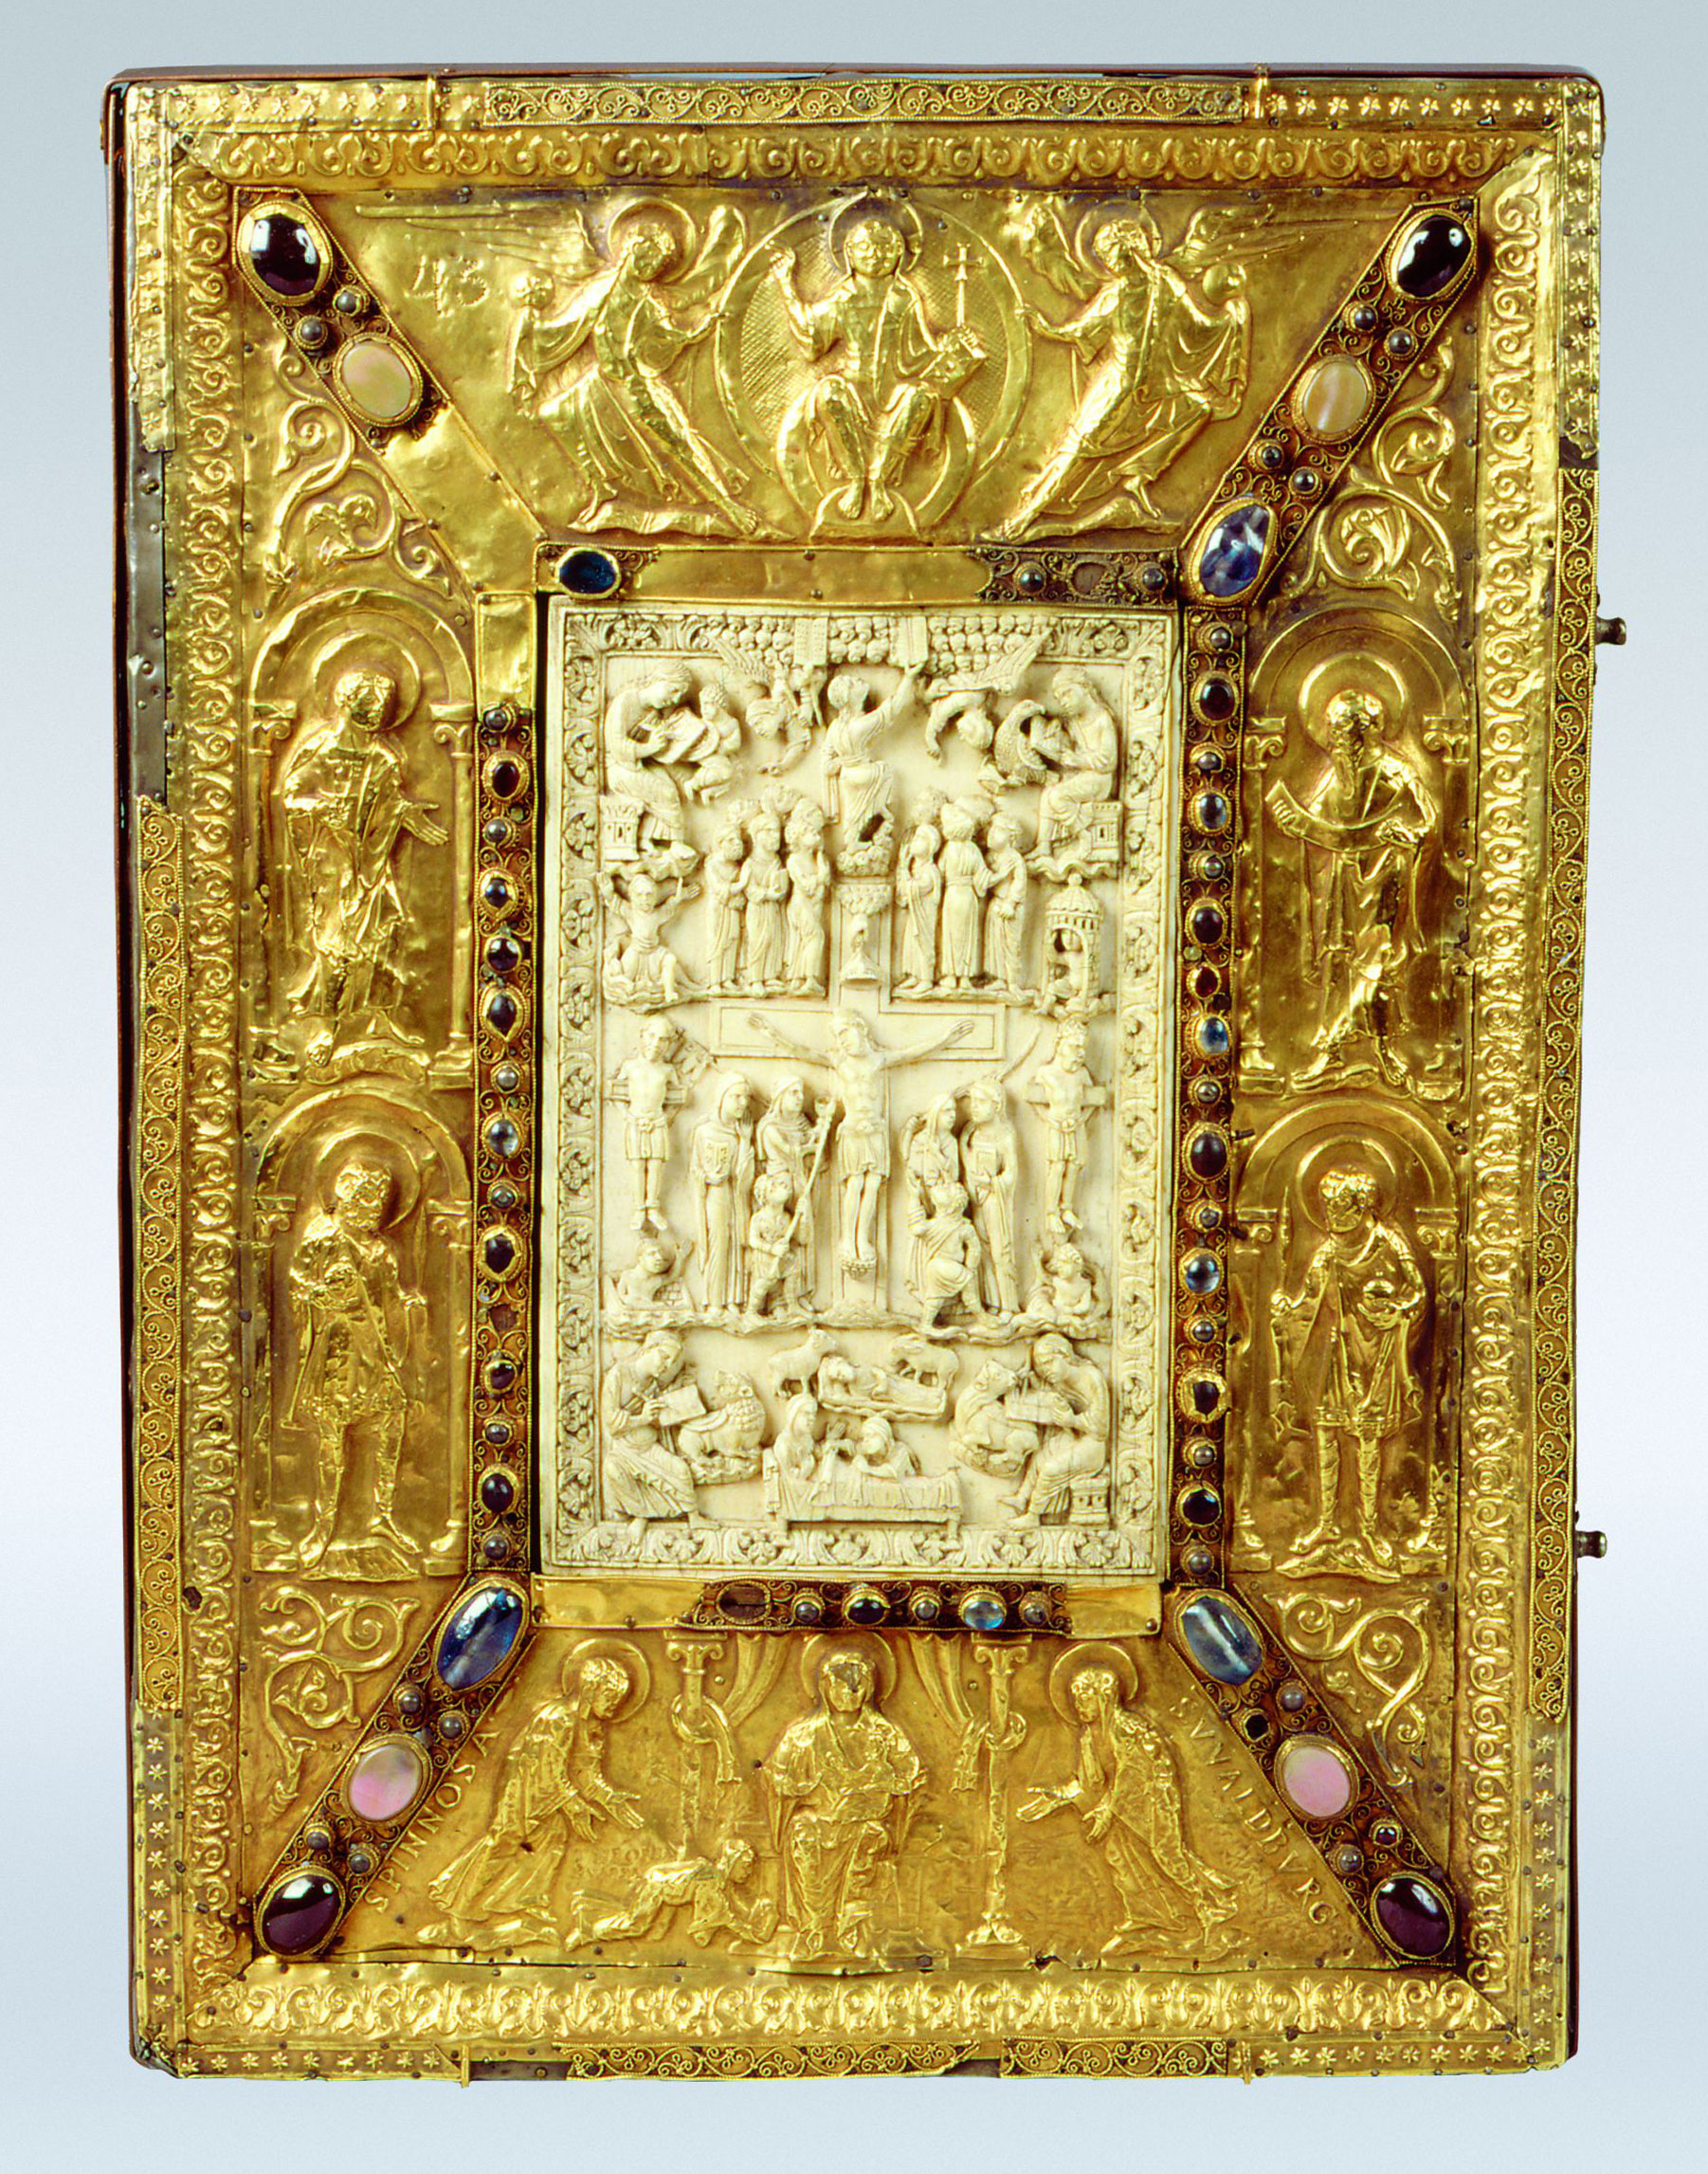 43
S PINNOSA
S VVALDBVRG